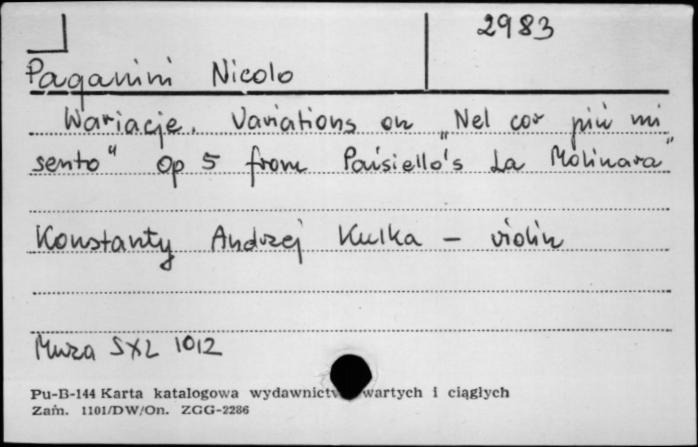 2983
Paganini Nicolo
Wariacje. Variations on „Nel cor più mi
sento" Op 5 from Paisiello's La Molinara"
Konstanty Andrzej Kulka – violin
Muza SXL 1012
Pu-B-144 Karta katalogowa wydawnictw wartych i ciągłych
Zam. 1101/DW/On. ZGG-2286